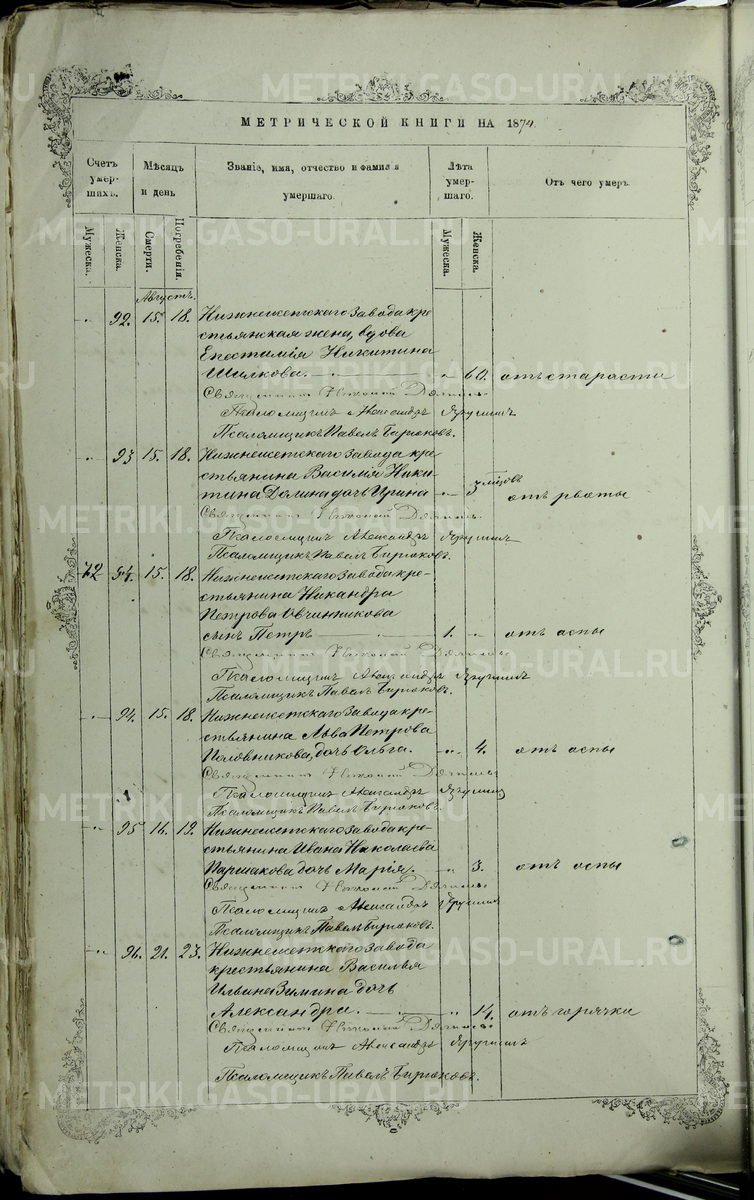 МЕТРИЧЕСКОЙ КНИГИ НА 1874
Счетъ умер- шихъ.
Мѣсяцъ и день
Званіе, имя, отчество и фамилія умершаго.
Лѣта умер- шаго.
Отъ чего умеръ.
Мужеска. Женска. Смерти. Погребенія. Мужеска. Женска.
Августъ.
" 92. 15. 18. Нижнеисетскаго Завода кре
стьянская жена, вдова
Епестимія Никитина
Шилкова. " 60. отъ старости
Священникъ Николай
Псаломщикъ Александръ
Псаломщикъ Павелъ Бирюковъ.
" 93 15. 18. Нижнеисетскаго Завода кре
стьянина Василія Ники
тина Долина дочь Ирина " 3 мѣсяцовъ отъ рвоты
Священникъ Николай
Псаломщикъ Александръ
Псаломщикъ Павелъ Бирюковъ.
72 94. 15. 18. Нижнеисетскаго Завода кре-
стьянина Никандра
Петрова Овчинникова
сынъ Петръ 1. " отъ оспы
Священникъ Николай
Псаломщикъ Александръ
Псаломщикъ Павелъ Бирюковъ.
" 94. 15. 18. Нижнеисетскаго Завода кре-
стьянина Льва Петрова
Половникова, дочь Ольга. " 4. отъ оспы
Священникъ Николай
Псаломщикъ Александръ
Псаломщикъ Павелъ Бирюковъ.
" 95 16. 19. Нижнеисетскаго Завода кре-
стьянина Ивана Николаева
Паршакова дочь Марія. " 3. отъ оспы
Священникъ Николай
Псаломщикъ Александръ
Псаломщикъ Павелъ Бирюковъ.
" 96. 21. 23. Нижнеисетскаго Завода
крестьянина Василья
Ильина Зимина дочь
Александра. " 14. отъ горячки
Священникъ Николай
Псаломщикъ Александръ
Псаломщикъ Павелъ Бирюковъ.
METRIKI.GASO-URAL.RU